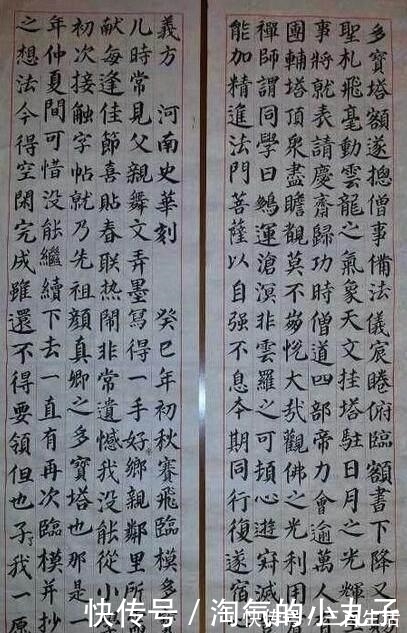 多寶塔額遂揔僧事備法儀宸睠俯臨額書下降又
聖札飛毫動雲龍之氣象天文挂塔駐日月之光輝
事將就表請慶齋歸功時僧道四部帝力會逾萬人
團輔塔頂衆盡瞻覩莫不悅大哉觀佛之光利用
禪師謂同學曰鵬運滄溟非雲羅之可頓心遊寂滅
能加精進法門菩薩以自强不息本期同行復遂宿
義方 河南史華刻 癸巳年初秋賽飛臨模多
儿時常見父親舞文弄墨寫得一手好鄉親鄰里所
献每逢佳節喜貼春联热鬧非常遺憾我没能從小
初次接触字帖就乃先祖顔真卿之多寶塔也那是一
年仲夏間可惜没能繼續下去一直有再次臨模并抄
之想法今得空閑完成雖還不得要領但也了我一愿
快传号 / 淘氣的小丸子